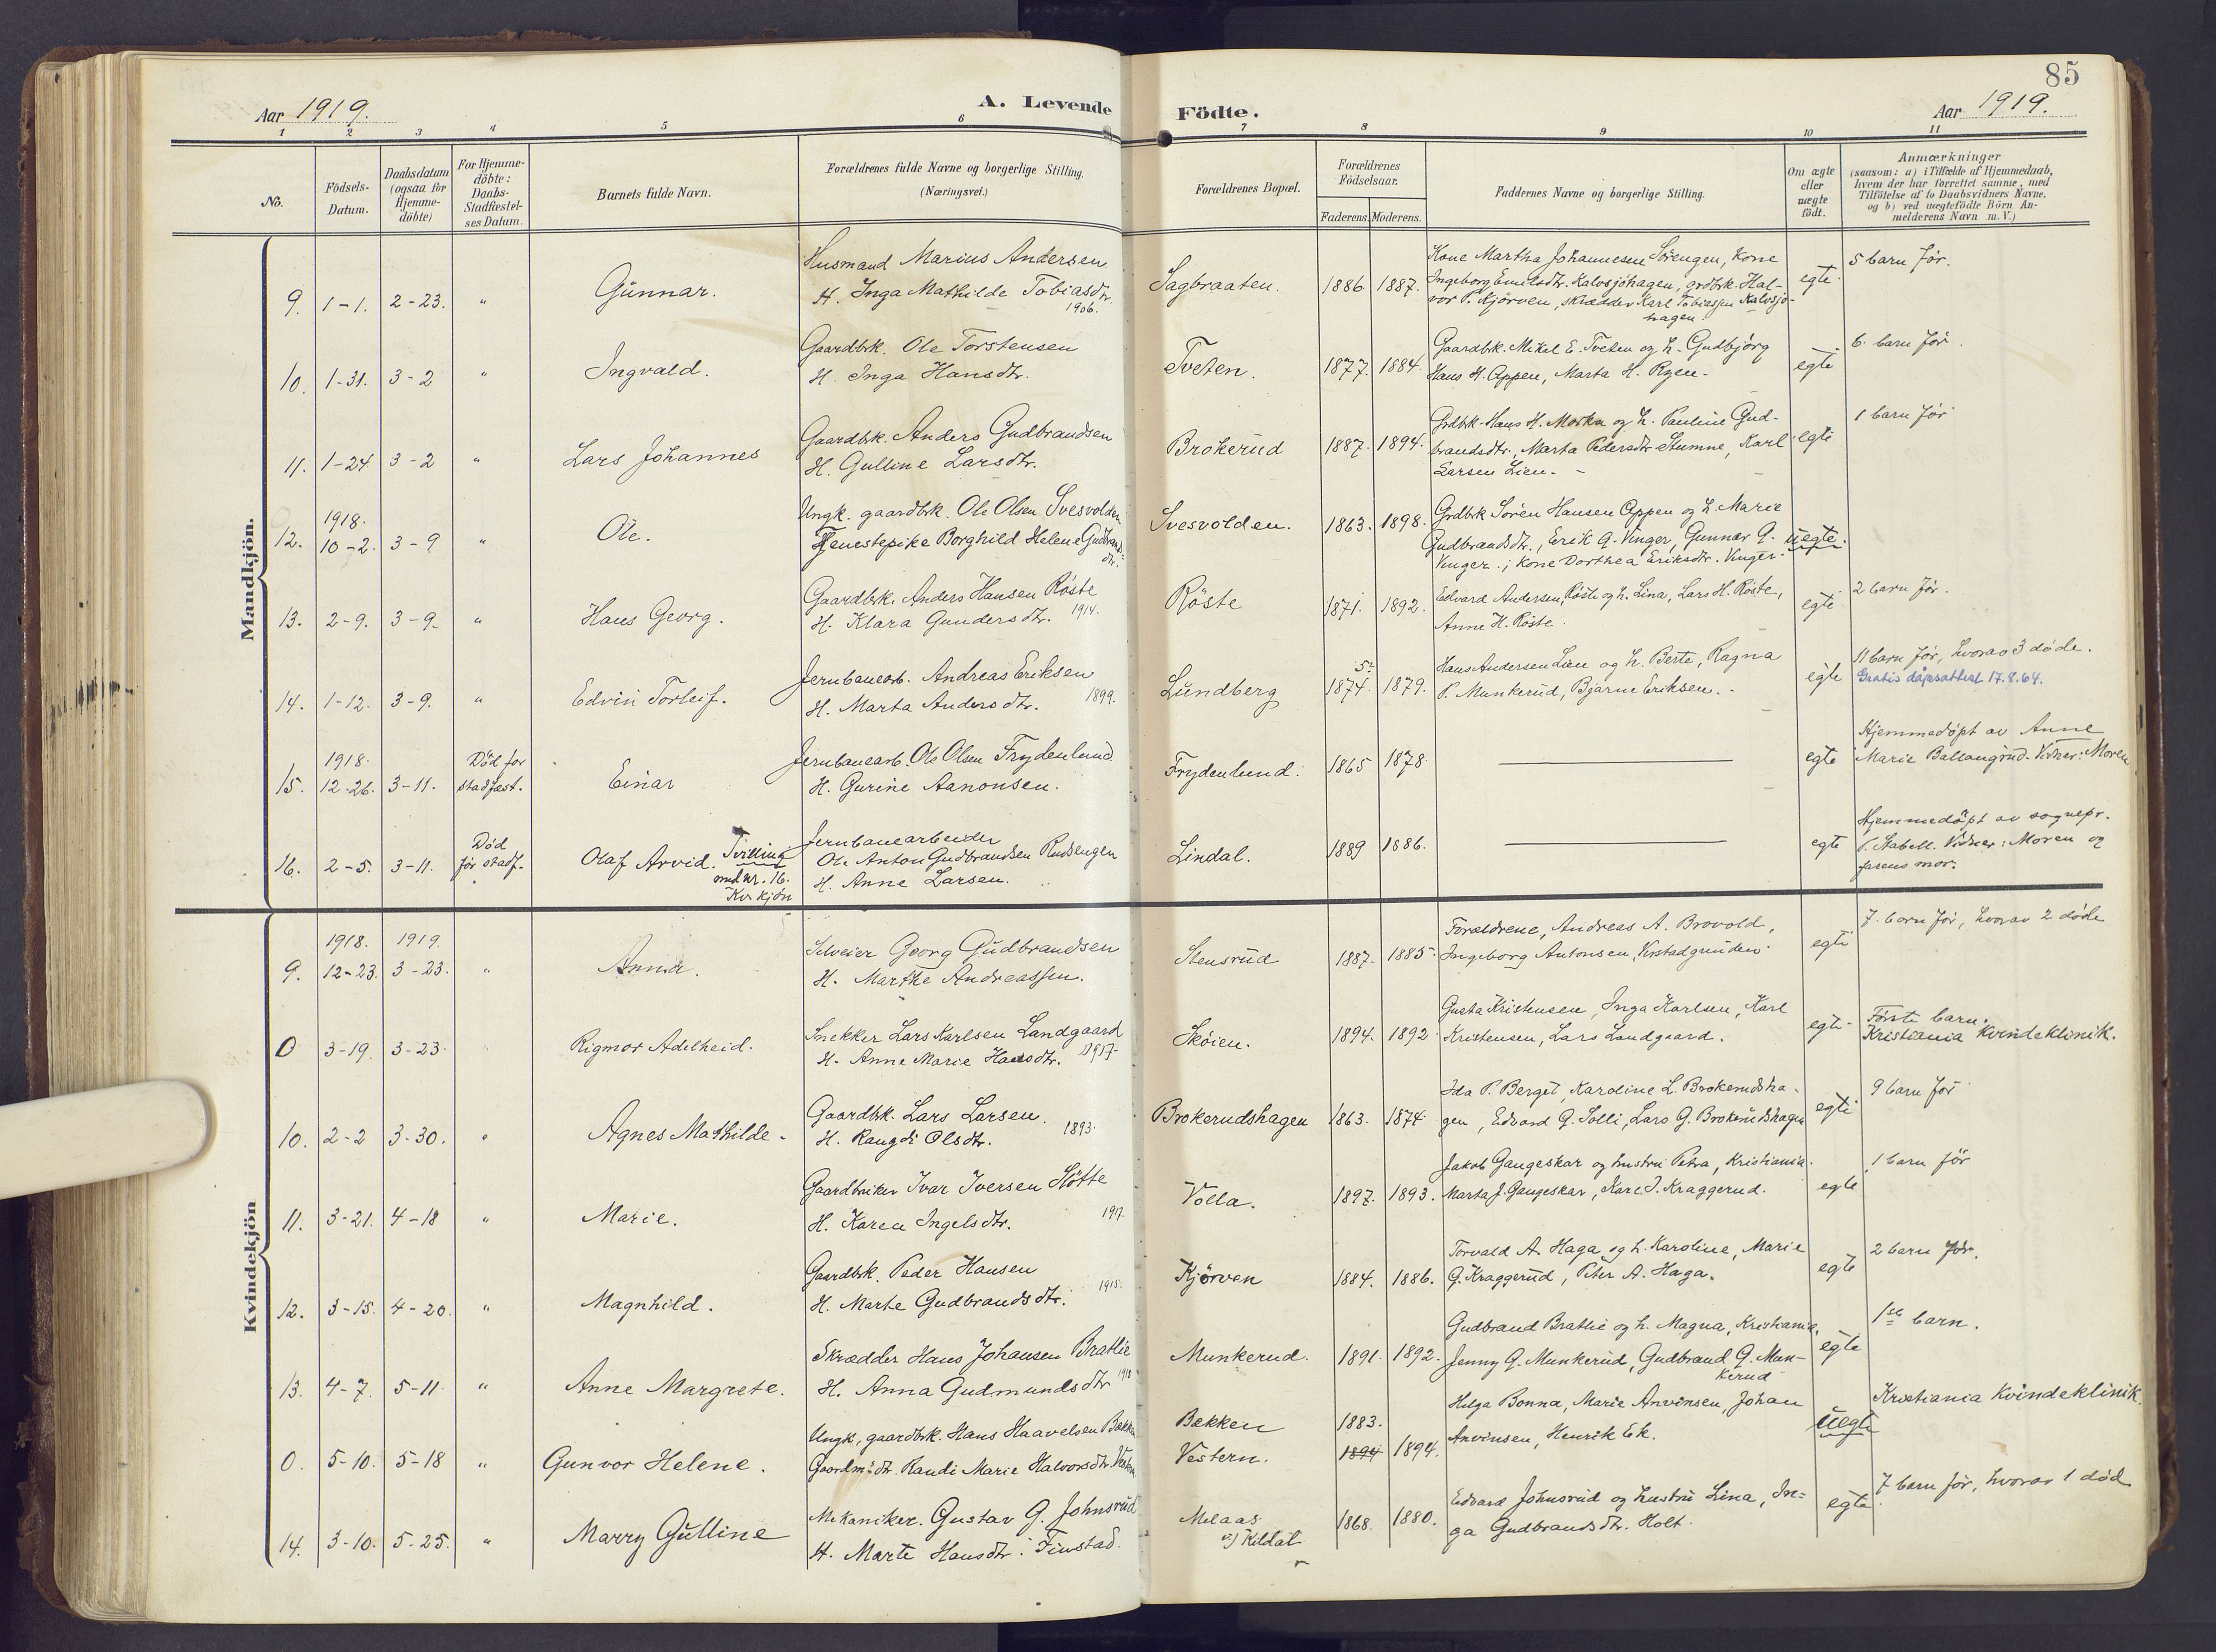 85
Aar 1919.
A. Levende Födte.
Aar 1919.
1 2 3 4 5 6 7 8 9 10 11
No.
Födsels-
Datum.
Daabsdatum
(ogsaa for
Hjemme-
döbte)
For Hjemme-
döbte:
Daabs-
Stadfæstel-
ses Datum.
Barnets fulde Navn.
Forældrenes fulde Navne og borgerlige Stilling.
(Næringsvei.)
Forældrenes Bopæl.
Forældrenes
Födselsaar.
Faderens. Moderens.
Faddernes Navne og borgerlige Stilling.
Om ægte
eller
uægte
födt.
Anmærkninger
(saasom: a) i Tilfælde af Hjemmedaab,
hvem der har forrettet samme, med
Tilföielse af to Daabsvidners Navne.
og b) ved uægtefödte Börn An-
melderens Navn m. V.)
Mandkjön.
9. 1-1. 2-23. "
Gunnar.
Husmand Marius Andersen
H. Inga Mathilde Tobiasdtr.
1906.
Sagbraaten.
1886 1887.
Kone Martha Johannesen Sörengen, Kone
Ingeborg Emilsdtr. Kalvsjöhagen, grdbrk. Hal-
vor P. Kjörven, skrædder Karl Tobiassen Kalvsjö-
hagen.
egte
5 barn för.
10. 1-31. 3-2 "
Ingvald.
Gaardbrk. Ole Torstensen
H. Inga Hansdtr.
Tveten.
1877. 1884.
Gaardbrk. Mikal E. Tveten og h. Gudbjörg
Hans H. Oppen, Marta H. Ryen.
egte
6 barn för.
11. 1-24 3-2 "
Lars Johannes
Gaardbrk. Anders Gudbrandsen
H. Gulline Larsdtr.
Brokerud
1887. 1894.
Grdbrk. Hans H. Morka og h. Pauline Gud-
brandsdtr., Marta Pedersdtr. Stumne, Karl
Larsen Lien.
egte
1 barn för
12. 1918. 10-2. 3-9 "
Ole.
Ungk. gaardbrk. Ole Olsen Svesvolden
Tjenestepike Borghild Helene Gudbrands-
dtr.
Svesvolden.
1863. 1898.
Grdbrk Sören Hansen Oppen og h. Marie
Gudbrandsdtr., Erik G. Vinger, Gunnar G.
Vinger, Kone Dorthea Eriksdtr. Vinger.
uegte.
13. 2-9. 3-9. "
Hans Georg.
Gaardbrk. Anders Hansen Röste
H. Klara Gundersdtr. 1914.
Röste
1871. 1892.
Edvard Andersen Röste og h. Lina, Lars H. Röste,
Anne H. Röste.
egte
2 barn för.
14. 1-12. 3-9. "
Edvin Torleif.
Jernbanearb. Andreas Eriksen
H. Marta Andersdtr. 1899.
Lundberg
5.
1874 1879.
Hans Andersen Lien og h. Berte, Ragna
P. Munkerud, Bjarne Eriksen.
egte
11 barn för, hvorav 3 döde.
Gratis dåpsattest 17.8.64.
15. 1918. 12-26. 3-11.
Död för
stadfæst.
Einar
Jernbanearb. Ole Olsen Frydenlund
H. Gurine Aanonsen.
Frydenlund.
1865 1878
egte
Hjemmedöpt av Anne
Marie Ballangrud. Vidner: Moren
16. 2-5. 3-11.
Död
för stadf.
Olaf Arvid. Tvilling
med nr. 16.
Kvkjön
Jernbanearbeider
Ole Anton Gudbrandsen Rudsengen
H. Anne Larsen.
Lindal.
1889 1886.
egte
Hjemmedöpt av sognepr.
P. Stabell. Vidner: Moren og
farens mor.
Kvindekjön
9. 1918. 12-23. 1919. 3-23. "
Anna.
Selveier Georg Gudbrandsen
H. Marthe Andreassen.
Stensrud
1887. 1885.
Forældrene, Andreas A. Brovold,
Ingeborg Antonsen,
egte
7. barn för, hvorav 2 döde
0 3-19. 3-23.
Rigmor Adelheid.
Snekker Lars Karlsen Landgaard
H. Anne Marie Hansdtr. 1917.
Sköien.
1894. 1892
Gusta Kristensen, Inga Karlsen, Karl
Kristensen, Lars Landgaard.
egte
Förste barn.
Kristiania Kvindeklinik.
10. 2-2 3-30. "
Agnes Mathilde.
Gaardbrk. Lars Larsen.
H. Rangdi Olsdtr. 1893.
Brokerudshagen
1863. 1874
Ida P. Berget, Karoline L. Brokerudsha-
gen, Edvard G. Solli, Lars G. Brokerudshagen
egte
9 barn för
11. 3-21. 4-18 "
Marie.
Gaardbruker Ivar Iversen Slötte
H. Karen Ingelsdtr. 1917.
Volla.
1897. 1893.
Jakob Gaugeskar og hustru Petra, Kristiania.
Marta J. Gaugeskar, Karl J. Kraggerud.
egte
1 barn för
12. 3-15. 4-20. "
Magnhild.
Gaardbrk. Peder Hansen
H. Marte Gudbrandsdtr. 1915.
Kjörven
1884. 1886.
Torvald A. Haga og h. Karoline, Marie
G. Kraggerud, Peter A. Haga.
egte
2 barn för.
13. 4-7. 5-11. "
Anne Margrete.
Skrædder Hans Johansen Bratlie
H. Anna Gudmundsdtr 1918
Munkerud.
1891. 1892.
Gudbrand Bratlie og h. Magna, Kristiania,
Jenny G. Munkerud, Gudbrand G. Mun-
kerud
egte
1ste barn.
0. 5-10. 5-18 "
Gunvor Helene.
Ungk., gaardbrk. Hans Haavelsen Bækken
Gaardm: dtr. Randi Marie Halvorsdtr. Vestern
Bækken
Vestern.
1883.
1894 1894.
Helga Bonna, Marie Arvinsen, Johan
Arvinsen, Henrik Ek.
Uegte
Kristiania Kvindeklinik.
14. 3-10. 5-25. "
Marry Gulline
Mekaniker. Gustav G. Johnsrud
H. Marte Hansdtr. Finstad.
Melaas
v/ Kildal
1868. 1880.
Edvard Johnsrud og hustru Lina, In-
ga Gudbrandsdtr. Holt.
egte
7 barn för, hvorav 1 död